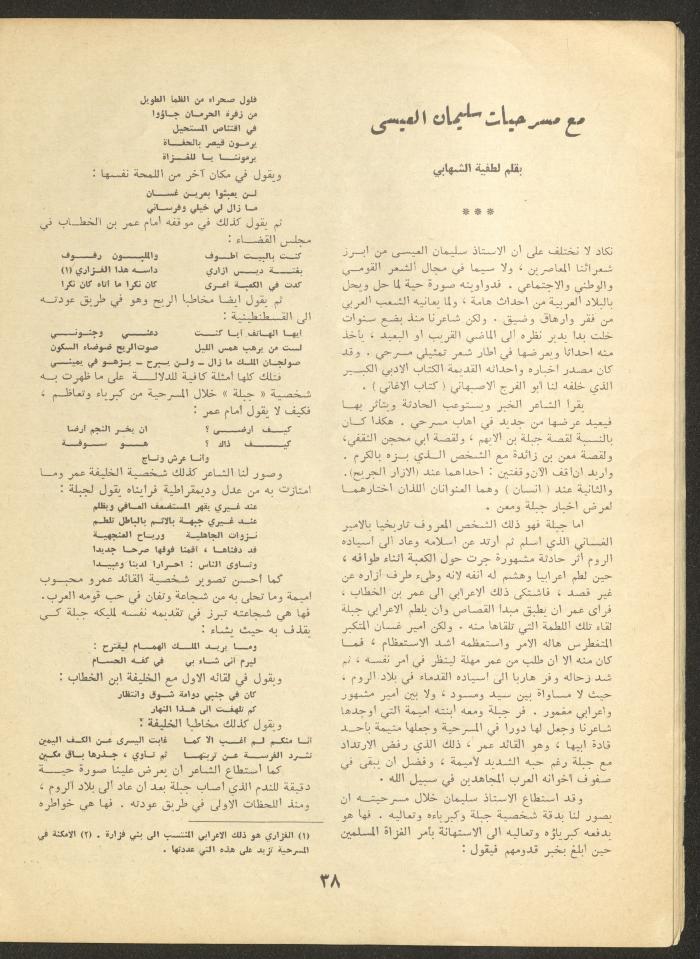 مع مسرحيات سليمان العيسى
بقلم لطفية الشهابي
* * *
نكاد لا نختلف على أن الاستاذ سليمان العيسى من ابرز
شعرائنا المعاصرين ، ولا سيما في مجال الشعر القومي
والوطني والاجتماعي . فدواوينه صورة حية لما حل ويحل
بالبلاد العربية من احداث هامة ، ولما يعانيه الشعب العربي
من فقر وارهاق وضيق . ولكن شاعرنا منذ بضع سنوات
خلت بدأ يدير نظره الى الماضي القريب او البعيد ، يأخذ
منه احداثا ويعرضها في اطار شعر تمثيلي مسرحي . وقد
كان مصدر اخباره واحداثه القديمة الكتاب الادبي الكبير
الذي خلفه لنا ابو الفرج الاصبهاني ( كتاب الاغاني ) .
يقرأ الشاعر الخبر ويستوعب الحادثة ويتأثر بها
فيعيد عرضها من جديد في اهاب مسرحي . هكذا كان
بالنسبة لقصة جبلة بن الايهم ، ولقصة ابي محجن الثقفي،
ولقصة معن بن زائدة مع الشخص الذي بزه بالكرم .
واريد ان اقف الآن وقفتين : احداهما عند (الازار الجريح).
والثانية عند ( انسان ) وهما العنوانان اللذان اختارهما
لعرض اخبار جبلة ومعن .
اما جبلة فهو ذلك الشخص المعروف تاريخيا بالامير
الغساني الذي اسلم ثم ارتد عن اسلامه وعاد الى اسياده
الروم اثر حادثة مشهورة جرت حول الكعبة اثناء طوافه ،
حين لطم اعرابيا وهشم له انفه لانه وطىء طرف ازاره عن
غير قصد ، فاشتكى ذلك الاعرابي الى عمر بن الخطاب ،
فرأى عمر ان يطبق مبدأ القصاص وان يلطم الاعرابي جبلة
لقاء تلك اللطمة التي تلقاها منه . ولكن امير غسان المتكبر
المتغطرس هاله الامر واستعظمه اشد الاستعظام ، فما
كان منه الا ان طلب من عمر مهلة لينظر في امر نفسه ، ثم
شد رحاله وفر هاربا الى اسياده القدماء في بلاد الروم ،
حيث لا مساواة بين سيد ومسود ، ولا بين امير مشهور
واعرابي مغمور . فر جبلة ومعه ابنته اميمة التي اوجدها
شاعرنا وجعل لها دورا في المسرحية وجعلها متيمة بأحد
قادة ابيها ، وهو القائد عمر ، ذلك الذي رفض الارتداد
مع جبلة رغم حبه الشديد لاميمة ، وفضل ان يبقى في
صفوف اخوانه العرب المجاهدين في سبيل الله .
وقد استطاع الاستاذ سليمان خلال مسرحيته ان
يصور لنا بدقة شخصية جبلة وكبرياءه وتعاليه . فها هو
يدفعه كبرياؤه وتعاليه الى الاستهانة بأمر الغزاة المسلمين
حين ابلغ بخبر قدومهم فيقول :
فلول صحراء من الظما الطويل
من زفرة الحرمان جاؤوا
في اقتناص المستحيل
يرمون قيصر بالحفاة
يرموننا يا للغزاة
ويقول في مكان آخر من اللمحة نفسها :
لن يعبثوا بعرين غسان
ما زال لي خيلي وفرساني
ثم يقول كذلك في موقفه امام عمر بن الخطاب في
مجلس القضاء :
كنت بالبيت اطوف والمليون رفوف
بغتة ديس ازاري داسه هذا الفزاري (١)
كدت في الكعبة اعرى كان نكرا ما أتاه كان نكرا
ثم يقول ايضا مخاطبا الريح وهو في طريق عودته
الى القسطنطينية :
ايها الهاتف ايا كنت دعني وجنوني
لست من يرهب همس الليل صوت الريح ضوضاء السكون
صولجان الملك ما زال – ولن يبرح – يزهو في يميني
فتلك كلها أمثلة كافية للدلالة على ما ظهرت به
شخصية « جبلة » خلال المسرحية من كبرياء وتعاظم ،
فكيف لا يقول امام عمر :
كيف ارضى ؟ ان يخر النجم ارضا
كيف ذاك ؟ هو سوقة
وانا عرش وتاج
وصور لنا الشاعر كذلك شخصية الخليفة عمر وما
امتازت به من عدل وديمقراطية فرأيناه يقول لجبلة :
عند غيري يقهر المستضعف العافي ويظلم
عند غيري جبهة بالاثم بالباطل تلطم
نزوات الجاهلية ورياح العنجهية
قد دفناها ، اقمنا فوقها صرحا جديدا
وتساوى الناس : احرارا لدينا وعبيدا
كما احسن تصوير شخصية القائد عمرو محبوب
اميمة وما تحلى به من شجاعة وتفان في حب قومه العرب.
فها هي شجاعته تبرز في تقديمه نفسه لمليكه جبلة كي
يقذف به حيث يشاء :
وما يريد الملك الهمام ليقترح :
ليرم اني شاء بي في كفه الحسام
ويقول في لقائه الاول مع الخليفة ابن الخطاب :
كان في جنبي دوامة شوق وانتظار
كم تلهفت الى هذا النهار
ويقول كذلك مخاطبا الخليفة :
انا منكم لم اغب الا كما غابت اليسرى عن الكف اليمين
تشرد الغرسة عن تربتها ثم تاوي ، جذرها باق مكين
كما استطاع الشاعر ان يعرض علينا صورة حية
دقيقة للندم الذي اصاب جبلة بعد ان عاد الى بلاد الروم ،
ومنذ اللحظات الاولى في طريق عودته . فها هي خواطره
(١) الفزاري هو ذلك الاعرابي المنتسب الى بني فزارة . (٢) الامكنة في
المسرحية تزيد على هذه التي عددتها .
٣٨